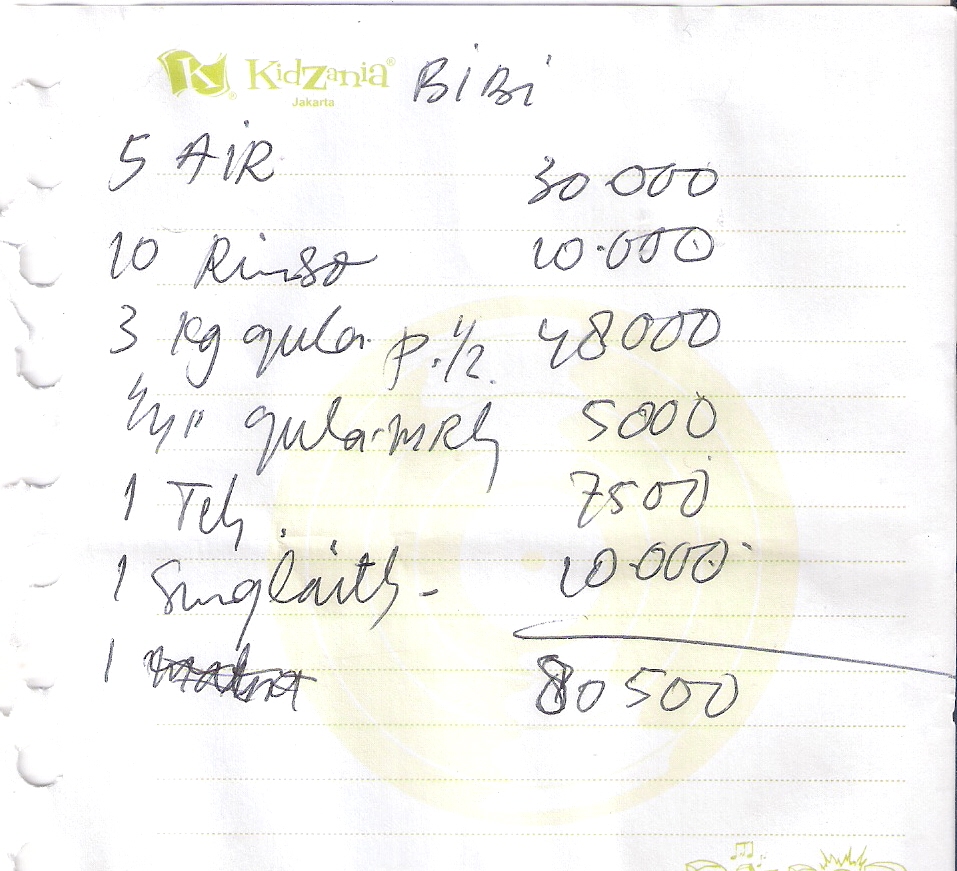 KidZania® BiBi
Jakarta
5 AIR 30.000
10 Rinso 10.000
3 kg gula p. 1/2. 48000
gula mRh 5000
1 Teh 7500
1 Sunglaith - 10.000
1
80 500